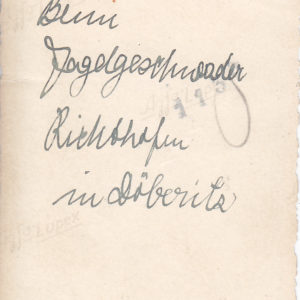 Beim
Jagdgeschwader
Richthofen
in Döberitz